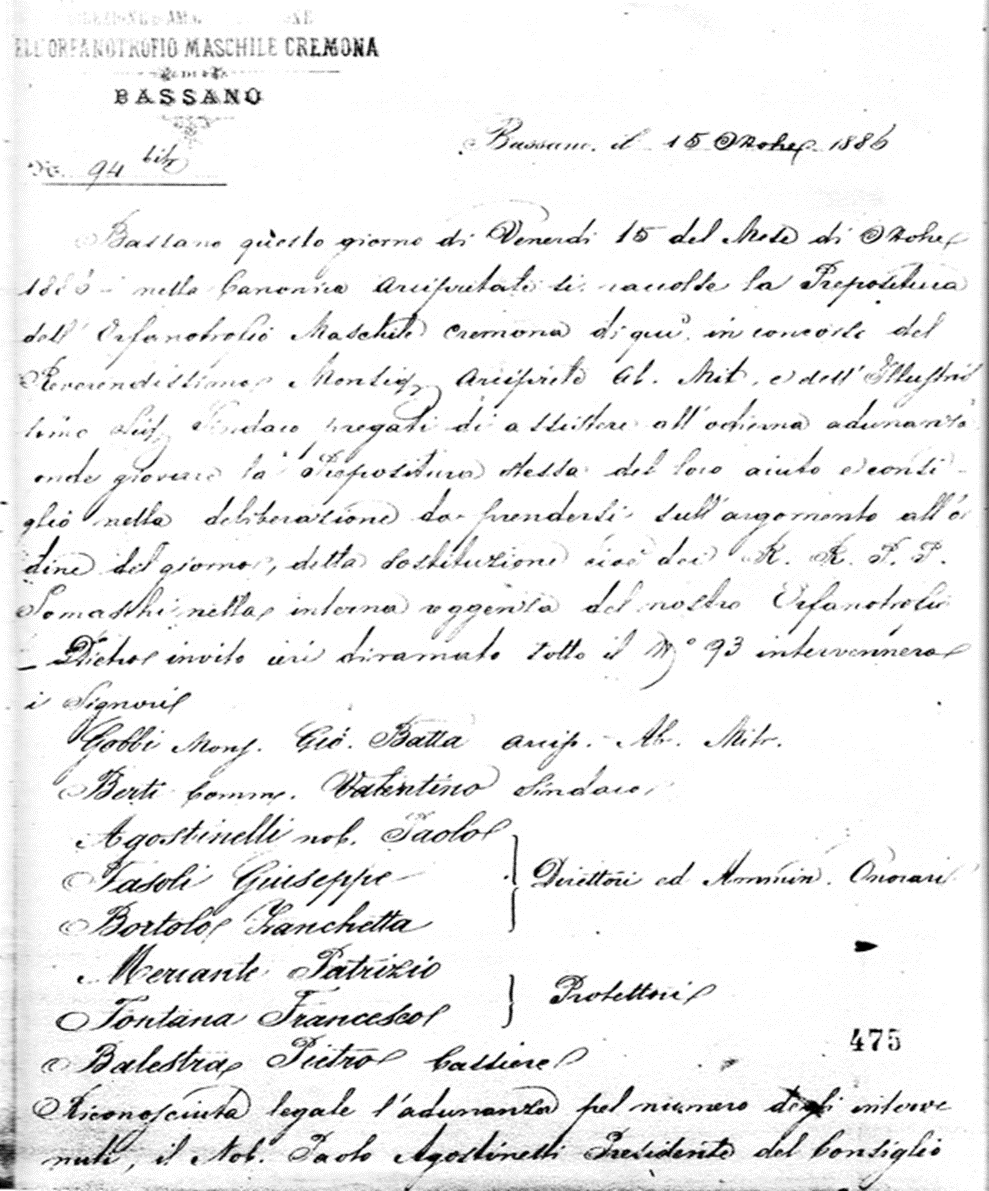 DIREZIONE ED AMMINISTRAZIONE
ELL'ORFANOTROFIO MASCHILE CREMONA
DI
BASSANO
N. 94 bis
Bassano, il 15 Ottobre 1886
Bassano questo giorno di Venerdi 15 del Mese di Ottobre
1886 - nella Canonica Arcipretale si raccolse la Prepositura
dell'Orfanotrofio Maschile Cremona di qui, in concorso del
Reverendissimo Monsig.r Arciprete Ab. Mit. e dell'Illustris
simo Sig.r Sindaco pregati di assistere all'odierna adunanza
onde giovare la Prepositura stessa del loro aiuto e consi-
glio nella deliberazione da prendersi sull'argomento all'or
dine del giorno, della sostituzione cioè dei R. R. P. P.
Somaschi nella interna reggenza del nostro Orfanotrofio
- Dietro invito ieri diramato sotto il N.° 93 intervennero
i Signori
Gobbi Mons. Gio. Batta Arcip. Ab. Mitr.
Berti Comm. Valentino Sindaco
Agostinelli nob. Paolo
Fasoli Giuseppe
Direttori ed Ammin. Onorari
Bortolo Zanchetta
Mercante Patrizio
Fontana Francesco
Protettori
Balestra Pietro Cassiere
475
Riconosciuta legale l'adunanza pel numero degli interve
nuti, il Nob. Paolo Agostinelli Presidente del Consiglio